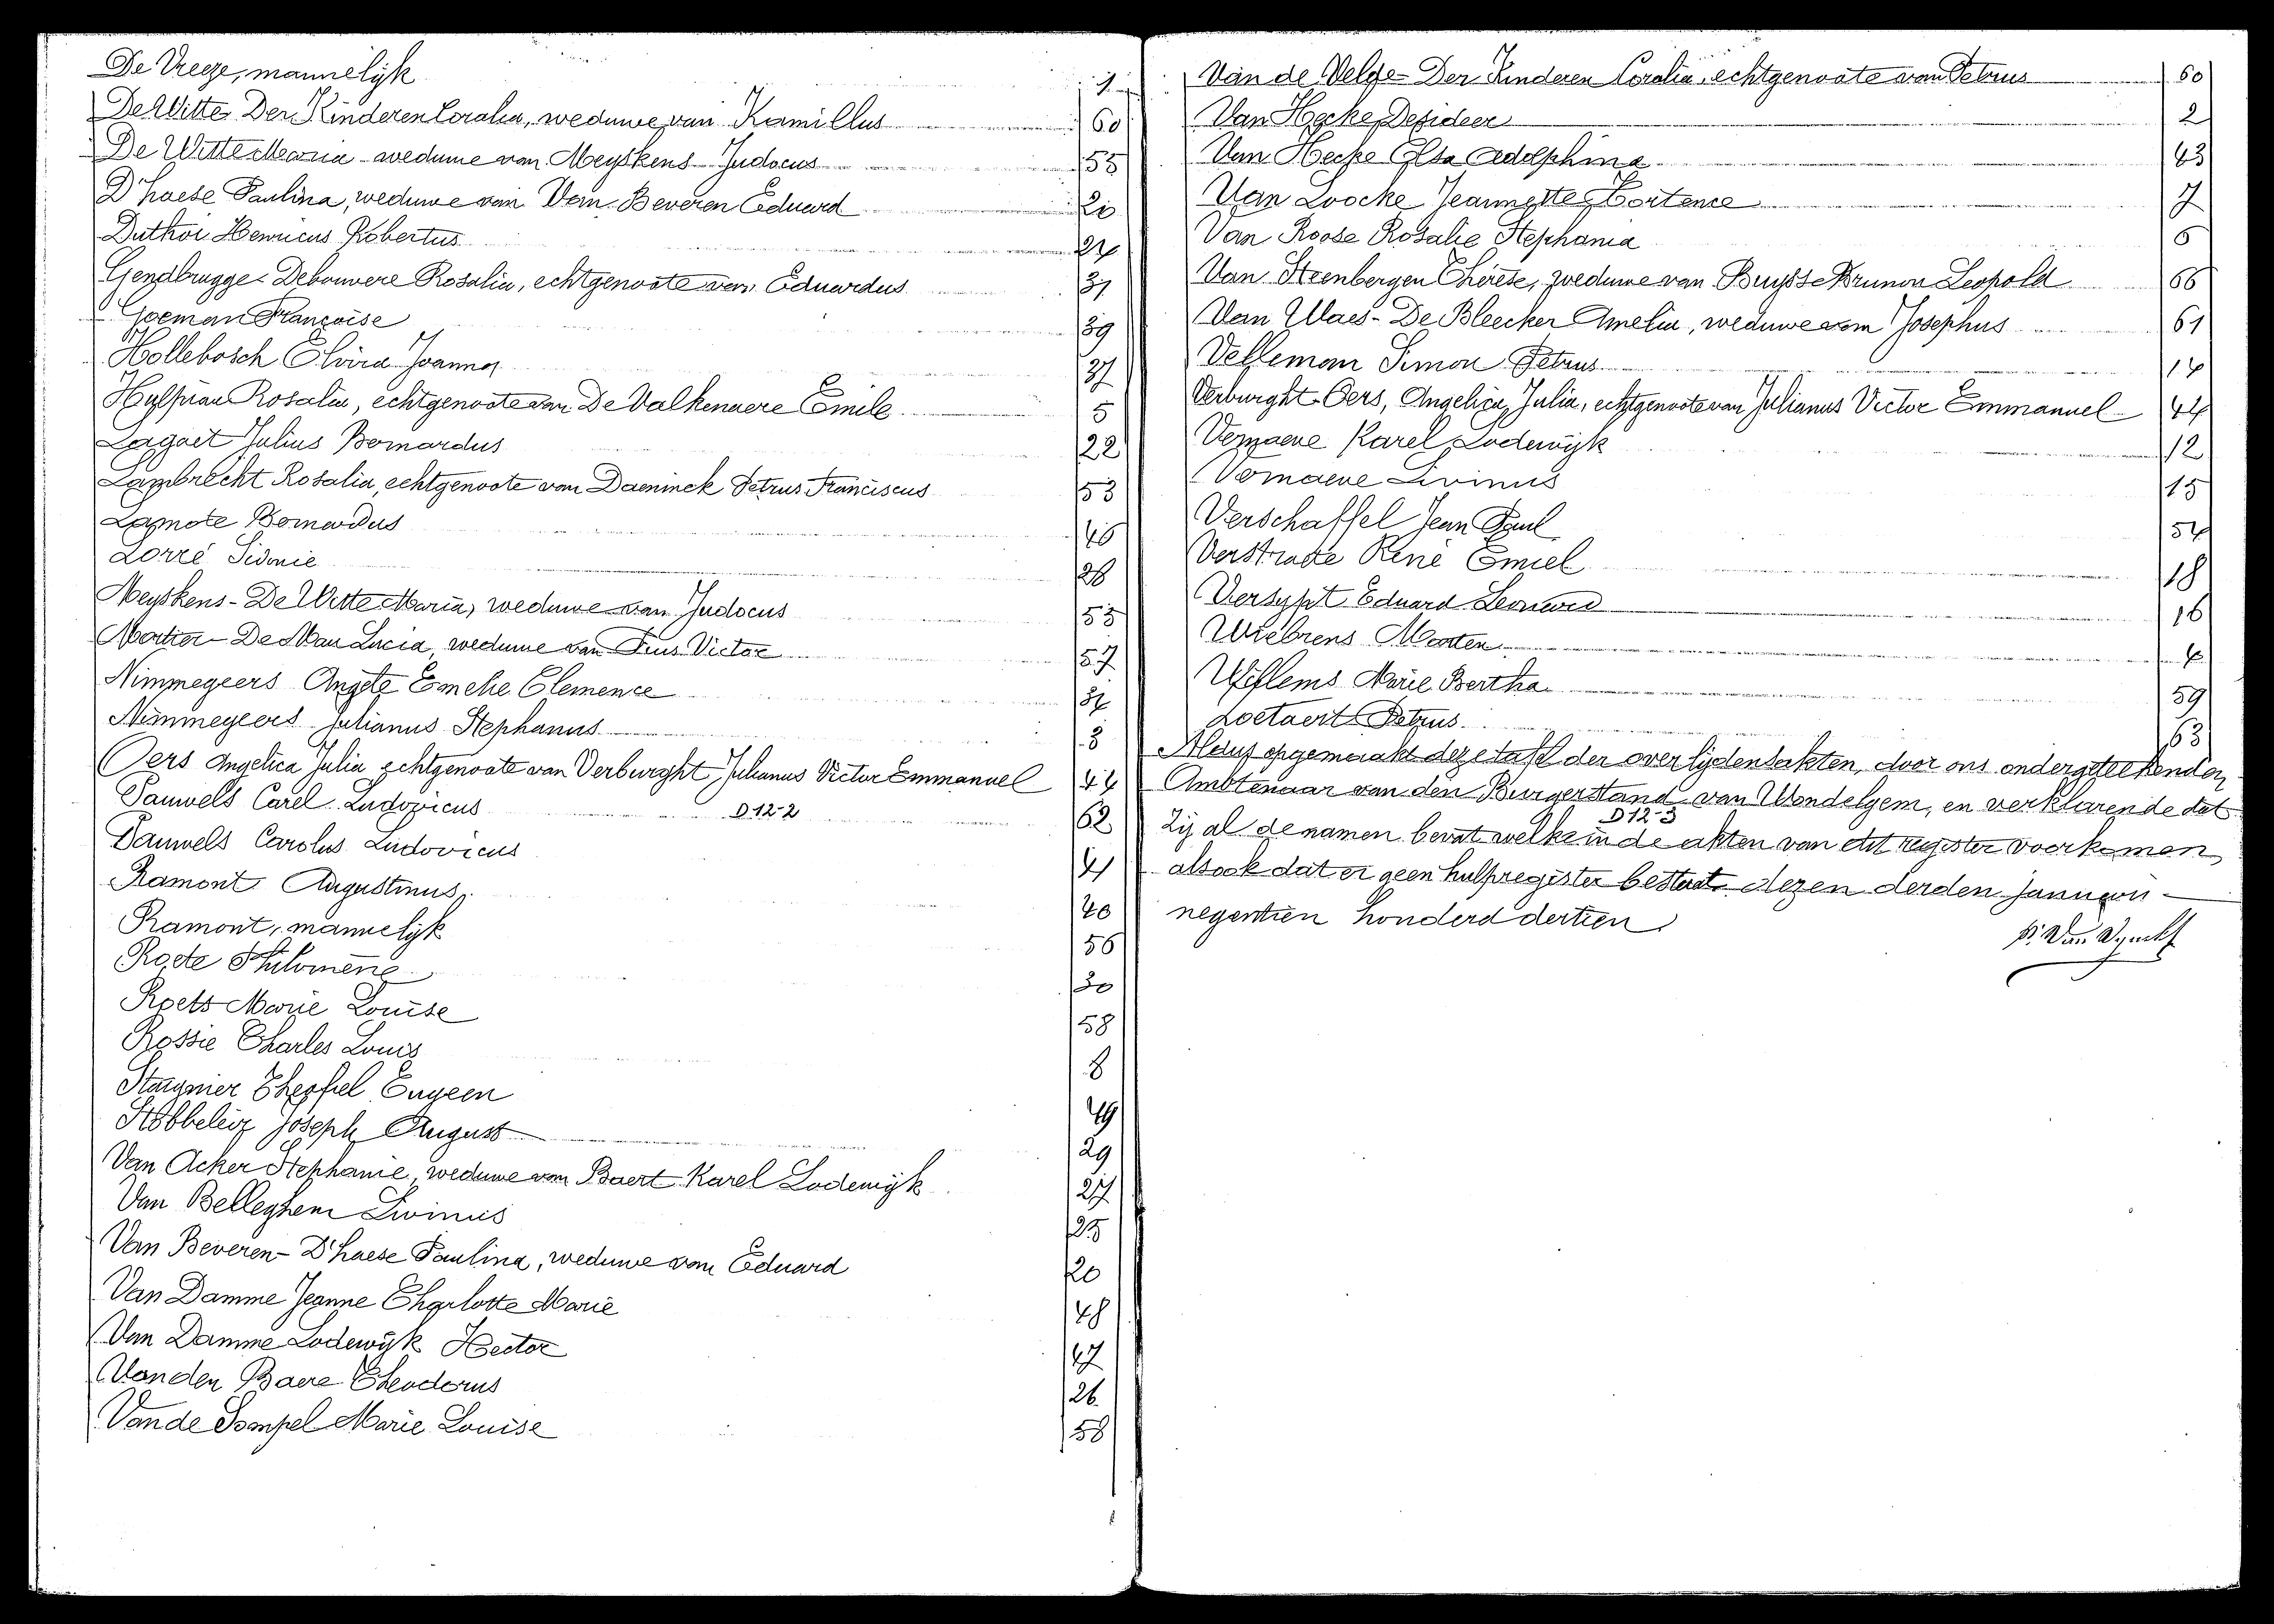 De Vreeze, mannelijk 1
De Witte Der Kinderen Coralia, weduwe van Kamillus 60
De Witte Maria - weduwe van Meyskens Judocus 55
D'haese Paulina, weduwe van Van Beveren Eduard 20
Duthoi Henricus Robertus 24
Gendbrugge - Debouvere Rosalia, echtgenoote van Eduardus 31
Goeman Françoise 39
Hollebosch Elvira Joanna 37
Hylpiau Rosalia, echtgenoote van De Valkenaere Emile 5
Lagaet Julius Bernardus 22
Lambrecht Rosalia, echtgenoote van Daeninck Petrus Franciscus 53
Lamote Bernardus 46
Lorré Sidonie 28
Meyskens - De Witte Maria, weduwe van Judocus 55
Mortier - De Mau Lucia, weduwe van Pius Victor 57
Nimmegeers Angèle Emelie Clemence 34
Nimmegeers Julianus Stephanus 3
Oers Angelica Julia echtgenoote van Verburght Julianus Victor Emmanuel 44
Pauwels Carel Ludovicus 62
D 12-2
Pauwels Carolus Ludovicus 41
Ramont Augustinus 40
Ramont, mannelijk 56
Roete Philomène 30
Roets Marie Louise 58
Rossie Charles Louis 8
Staignier Theofiel Eugeen 49
Stobbeleir Joseph August 29
Van Acker Stephanie, weduwe van Baert Karel Lodewijk 27
Van Belleghem Livinus 25
Van Beveren - D'haese Paulina, weduwe van Eduard 20
Van Damme Jeanne Charlotte Marie 48
Van Damme Lodewijk Hector 47
Van den Baere Theodorus 26
Van de Sompel Marie Louise 58
Van de Velde - Der Kinderen Coralia, echtgenoote van Petrus 60
Van Hecke Desideer 2
Van Hecke Elsa Adolphina 43
Van Loocke Jeannette Hortence 7
Van Roose Rosalie Stephania 6
Van Steenbergen Thérèse, weduwe van Buysse Brunon Leopold 66
Van Waes - De Bleecker Amelia, weduwe van Josephus 61
Velleman Simon Petrus 14
Verburght - Oers, Angelica Julia, echtgenoote van Julianus Victor Emmanuel 44
Vernaeve Karel Lodewijk 12
Vernaeve Livinus 15
Verschaffel Jean Paul 54
Verstraete René Emiel 18
Versypt Eduard Leonard 16
Wiebrens Maarten 4
Willems Marie Bertha 59
Zoetaert Petrus 63
Aldus opgemaakt deze tafel der overlijdensakten, door ons ondergeteekenden
Ambtenaar van den Burgerstand van Wondelgem, en verklarende dat
D 12-3
zij al de namen bevat welke in de akten van dit register voorkomen,
alsook dat er geen hulpregister bestaat. dezen derden januari
negentien honderd dertien.